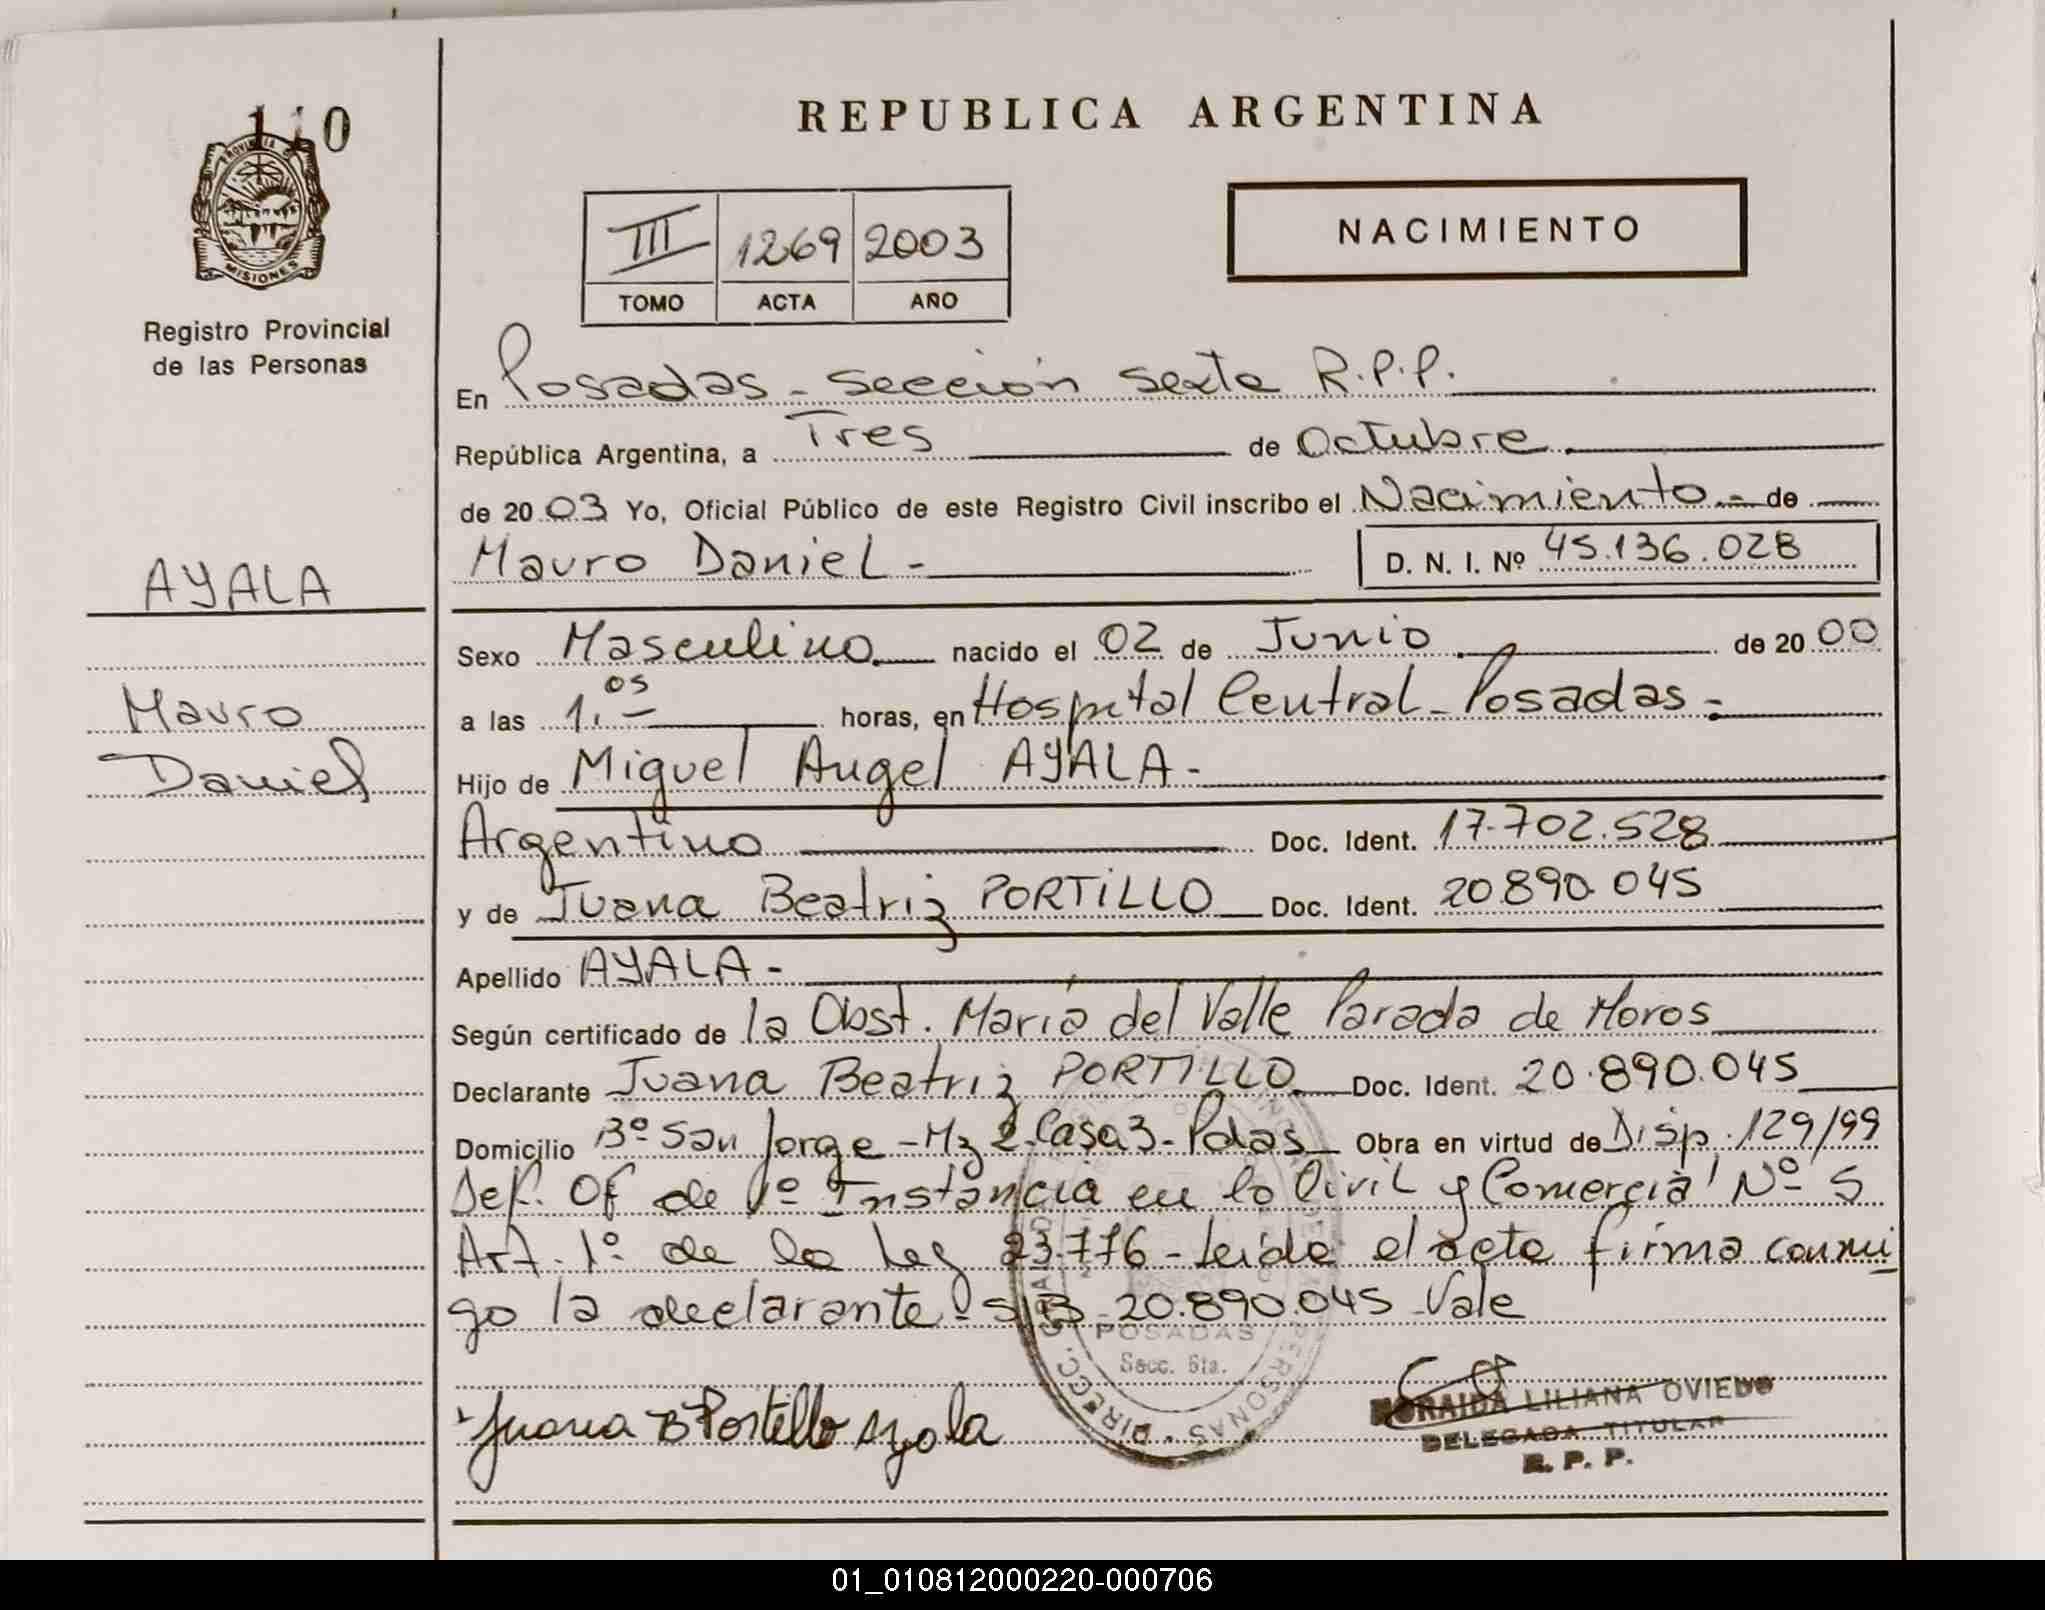 110
PROVINCIA DE
MISIONES
Registro Provincial
de las Personas
AYALA
Mauro
Daniel
REPUBLICA ARGENTINA
III 1269 2003
TOMO ACTA AÑO
NACIMIENTO
En Posadas - Sección Sexta R.P.P.
República Argentina, a Tres de Octubre
de 2003 Yo, Oficial Público de este Registro Civil inscribo el Nacimiento - de
Mauro Daniel - D. N. I. Nº 45.136.028
Sexo Masculino nacido el 02 de Junio de 2000
a las 1.05 horas, en Hospital Central - Posadas -
Hijo de Miguel Angel AYALA -
Argentino Doc. Ident. 17.702.528
y de Juana Beatriz PORTILLO Doc. Ident. 20.890.045
Apellido AYALA -
Según certificado de la Obst. María del Valle Parada de Moros
Declarante Juana Beatriz PORTILLO Doc. Ident. 20.890.045
Domicilio Bº San Jorge - Mz 2 - Casa 3 - Pdas Obra en virtud de Disp. 129/99
Def. Of de 1º Instancia en lo Civil y Comercial Nº 5
Art. 1º de la ley 23.776 - leída el acta firma conmi
go la declarante - S/B - 20.890.045 - Vale
POSADAS
Secc. 6ta.
DIRECC. GRAL. PERSONAS
Juana B Portillo Ayala
NORAIDA LILIANA OVIEDO
DELEGADA TITULAR
R. P. P.
01_010812000220-000706